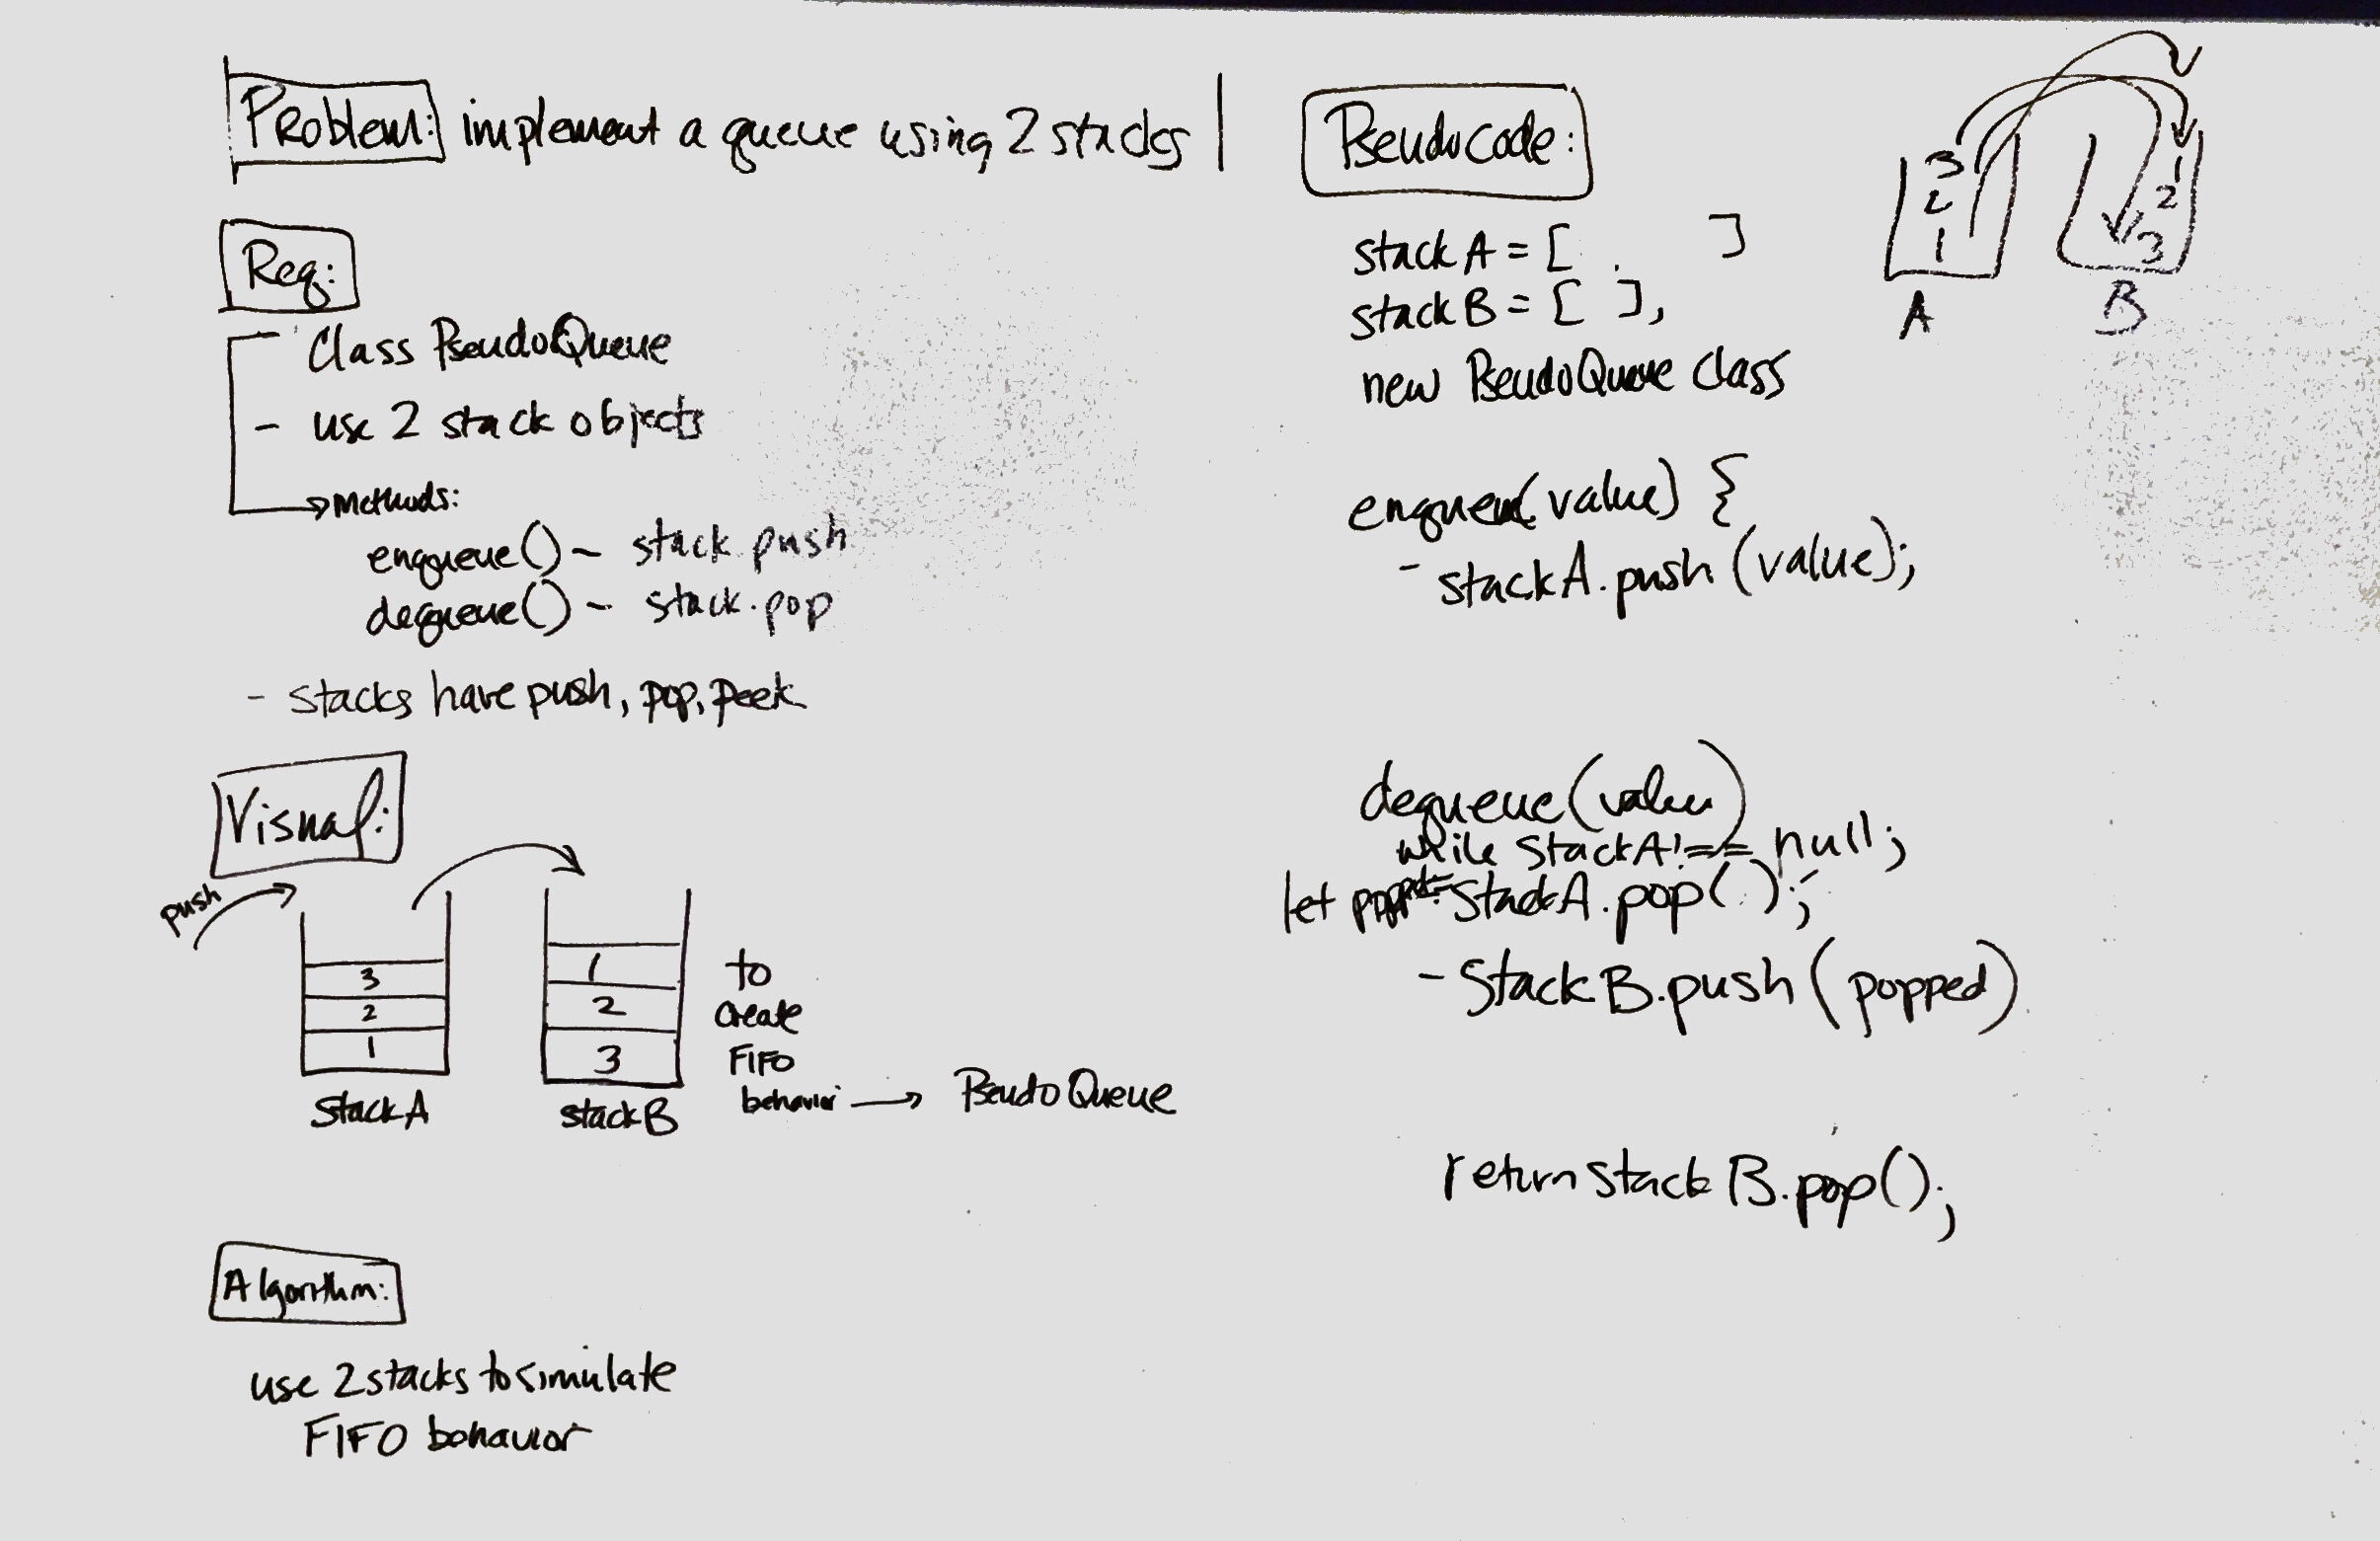 Problem: implement a queue using 2 stacks
Req:
Class PseudoQueue
- use 2 stack objects
Methods:
enqueue() - stack.push
dequeue() - stack.pop
- stacks have push, pop, peek
Visual:
push
3
2
1
stackA
1
2
3
stackB
to
create
FIFO
behavior → PseudoQueue
Algorithm:
use 2 stacks to simulate
FIFO behavior
Pseudocode:
stackA = [ . ]
stackB = [ ],
new PseudoQueue class
3
2
1
A
1
2
3
B
(value) {
- stackA.push(value);
dequeue(value)
while stackA !== null;
let stackA.pop();
- stackB.push(popped)
return stackB.pop();